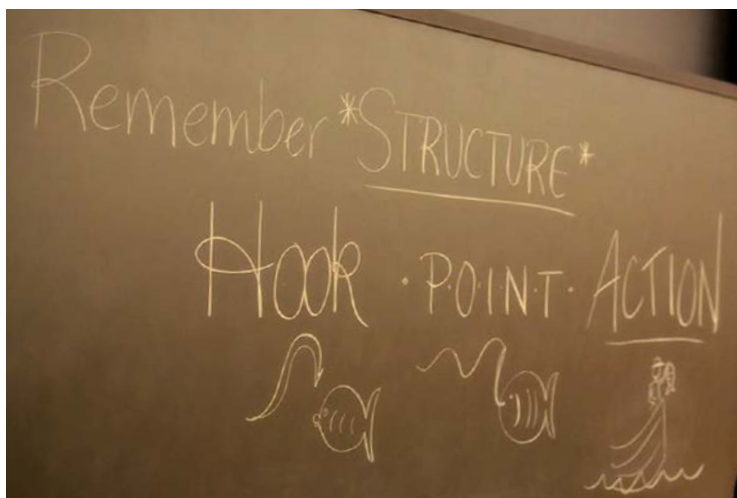 Remember *STRUCTURE*
HOOK ·P·O·I·N·T· ACTION